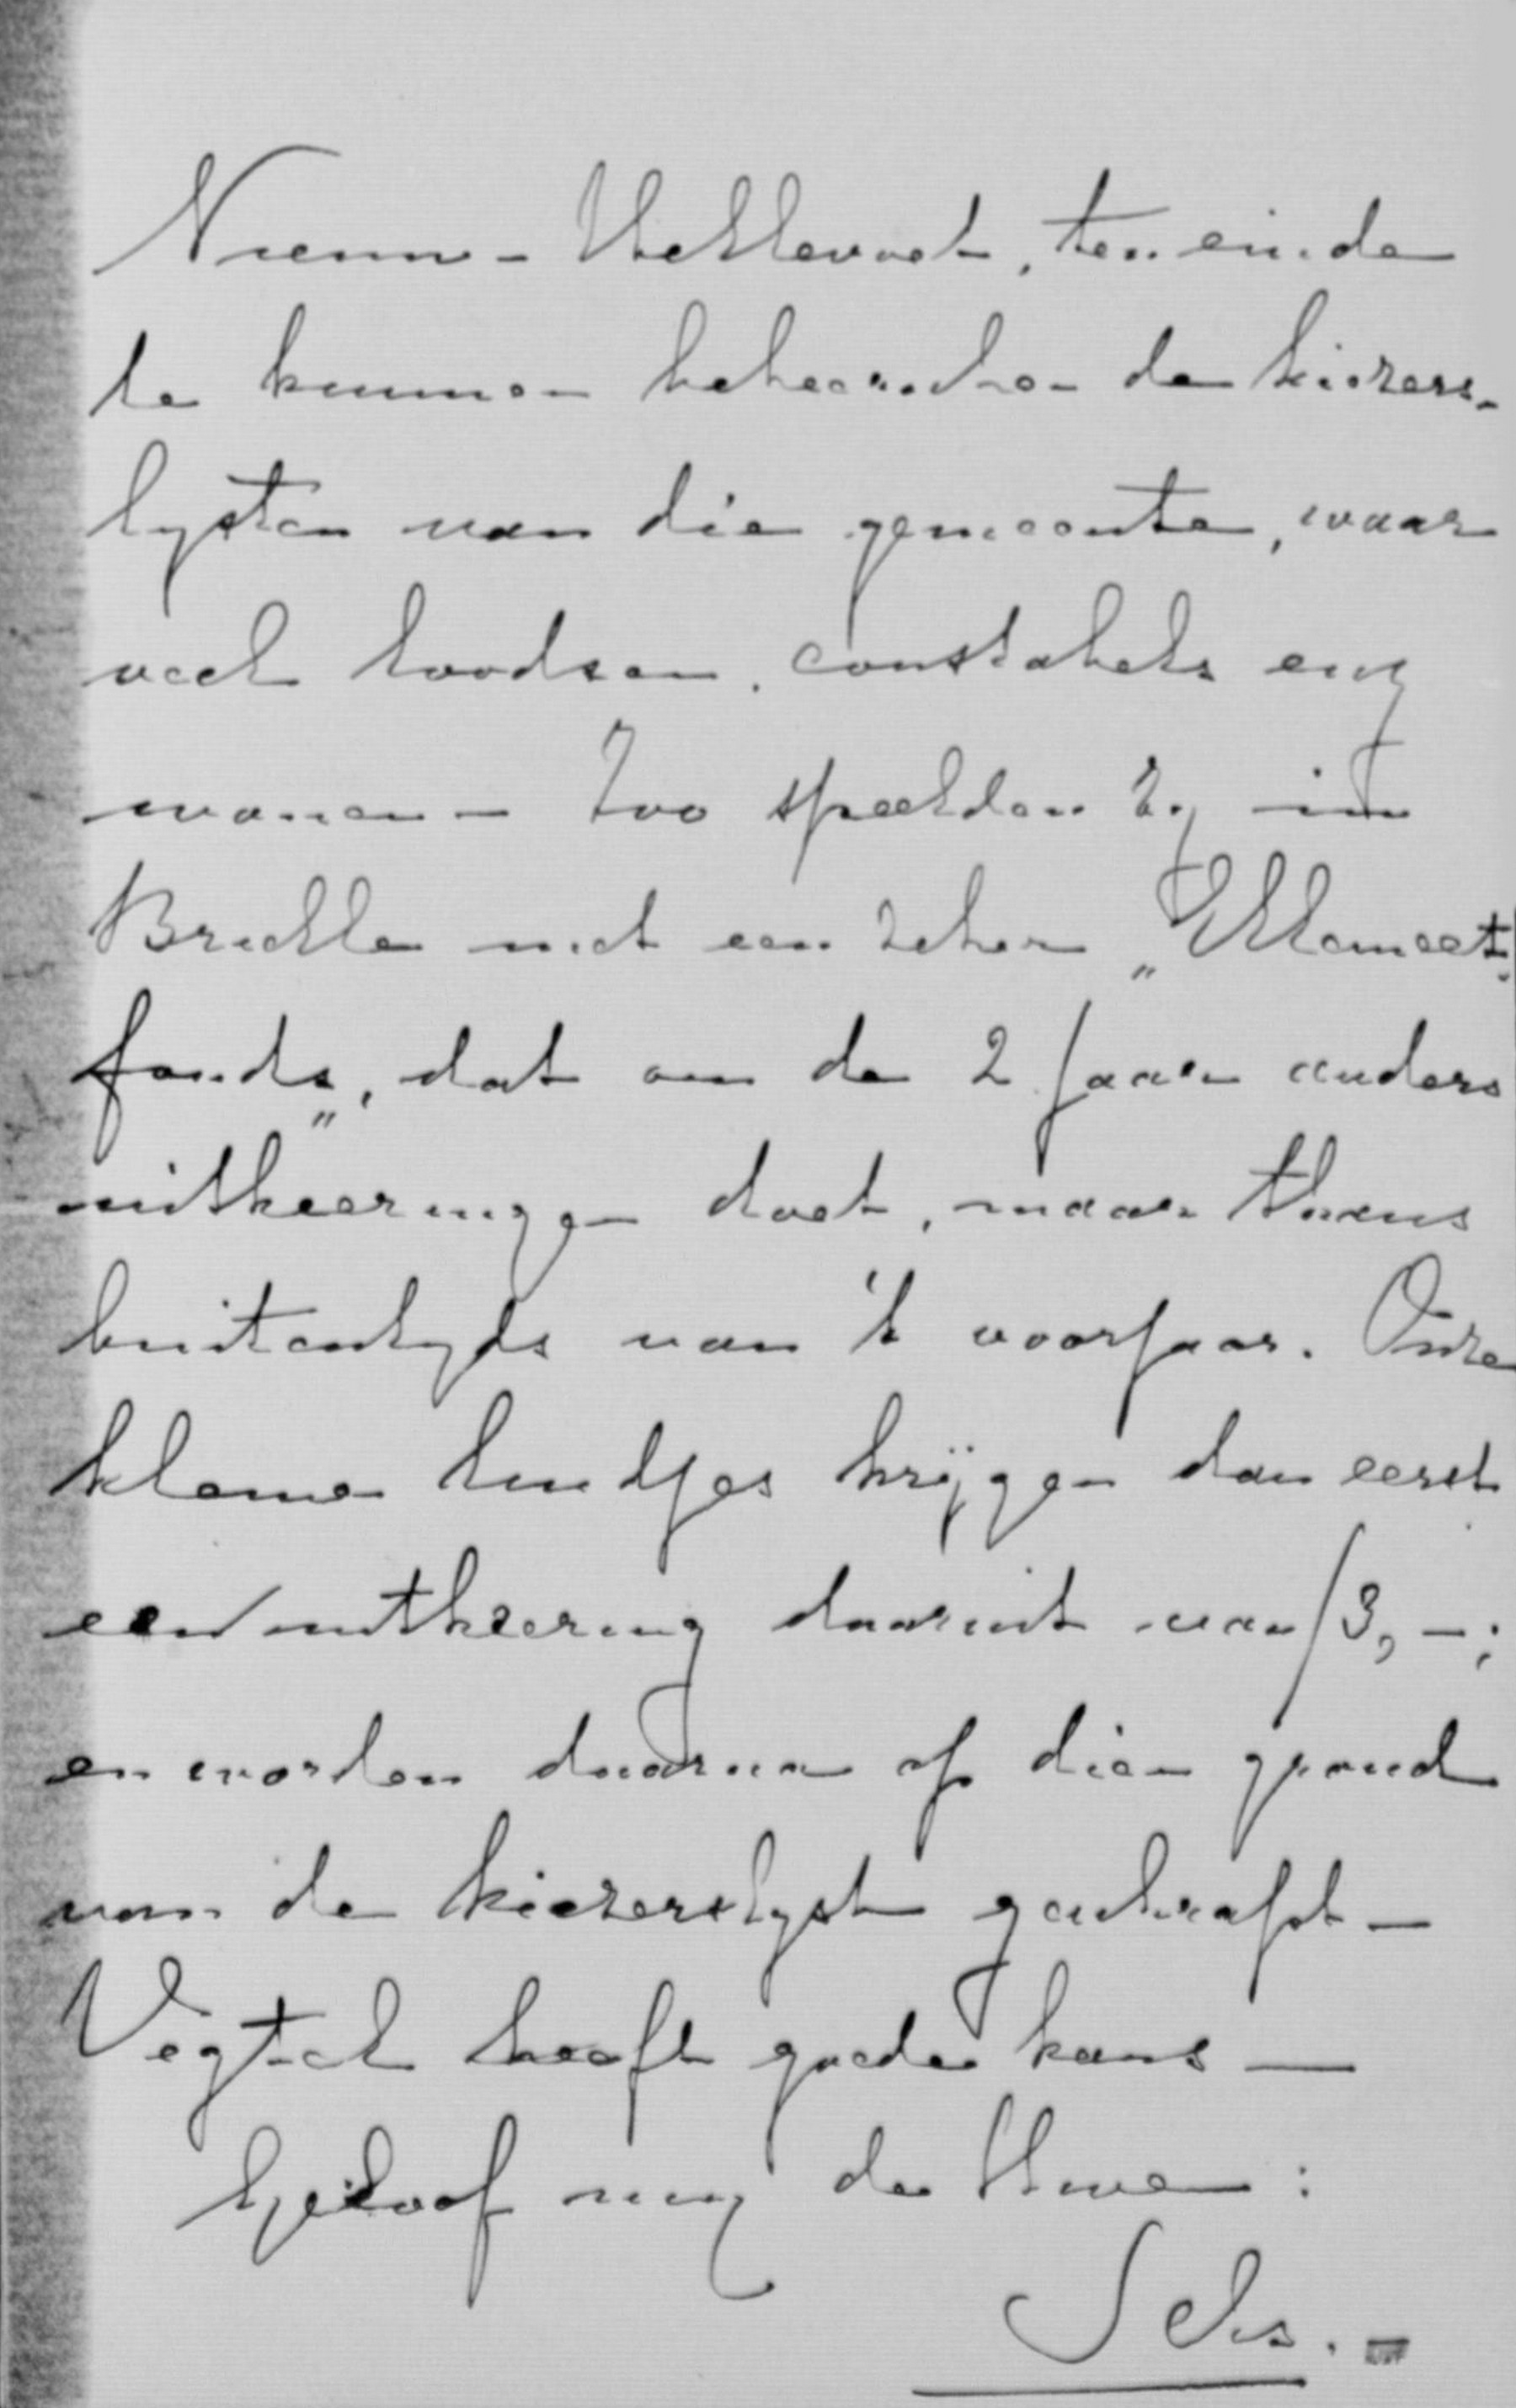 Nieuw-Hellevoet, ten einde
te kunnen beheerschen de kiezers-
lysten van die gemeente, waar
veel loodsen, constabels enz
wonen - Zoo speelden zy in
Brielle met een zeker „
fonds„, dat om de 2 jaar anders
uitkeeringen doet, maar thans
buitentyds van 't voorjaar. Onze
kleine luidjes krijgen dan eerst
een uitkeering daaruit van f 3,-;
en worden daarna op dien grond
van de kiezerslyst geschrapt -
Vegtel heeft goede kans —
Geloof my de Uwe:
Sels.